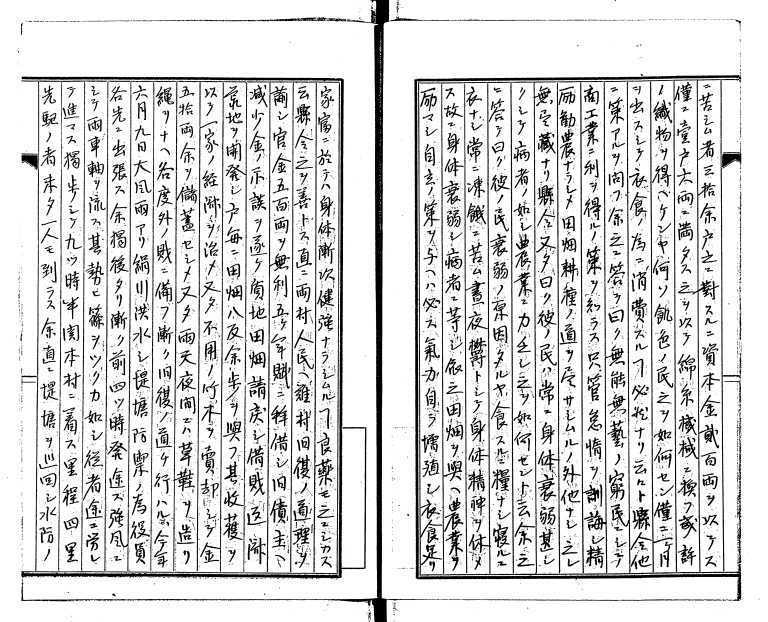 ニ苦シム者三拾余戸之ニ對スルニ資本金貳百両ヲ以テス
僅ニ壹戸六両ニ満タス之ヲ以テ綿糸機械ニ換フ或許
ノ織物ヲ得ヘケンヤ何ソ飢色ノ民之ヲ如何セン僅ニ一ヶ月
ヲ出スシテ衣食ノ為ニ消費スル必然ナリ云々ト縣令他
ニ策アルヲ問フ余之ニ答テ曰ク無能無藝ノ窮民ニシテ
商工業ニ利ヲ得ルノ策ヲ知ラス只管怠惰ヲ訓誨シ精
励勸農ナラシメ田畑耕種ノ道ヲ尽サシムルノ外他ナシ之レ
無尽藏ナリ縣令又タ曰ク彼ノ民ハ常ニ身体衰弱甚シ
クシテ病者ノ如シ農業ニ力乏シ之ヲ如何セント云余之
ニ答テ曰ク彼ノ民衰弱ノ原因タルヤ食スルニ糧ナシ寝ルニ
衣ナシ常ニ凍餓ニ苦ム晝夜欝トシテ身体精神ヲ休メ
ス故ニ身体衰弱シ病者ニ等シ依之田畑ヲ與ヘ農業ヲ
励マシ自立ノ策ヲ与ヘハ必ス氣力自ラ増進シ衣食足リ
家富ニ於テハ身体漸次健強ナラシムル良藥モ之ニシカス
云縣令之ヲ善トス直ニ両村人民ヘ難村旧復ノ道理ヲ
諭シ官金五百両ヲ無利五ヶ年賦ニ拜借シ旧債主ヘ
減少金ノ示談ヲ遂ケ質地田畑請戻シ借財返済
荒地ヲ開発シ戸毎ニ田畑八反余歩ヲ與フ其收穫ヲ
以テ一家ノ経済ヲ治メ又タ不用ノ竹木ヲ賣却シテ金
五拾両余ヲ備蓄セシメ又タ雨天夜間ニハ草鞋ヲ造リ
縄ヲナヘ各度外ノ財ニ備フ漸ク旧復ノ道ヲ行ハル今年
六月九日大風雨アリ絹川洪水シ堤塘防禦ノ為役員
各先ニ出張ス余獨後タリ漸ク前四ツ時発途ス強風ニ
シテ雨車軸ヲ流ス其勢ヒ篠ヲツクカ如シ従者途ニ労レ
テ進マス獨歩シテ九ツ時半関本村ニ着ス里程四里
先駆ノ者未タ一人モ到ラス余直ニ堤塘ヲ巡回シ水防ノ